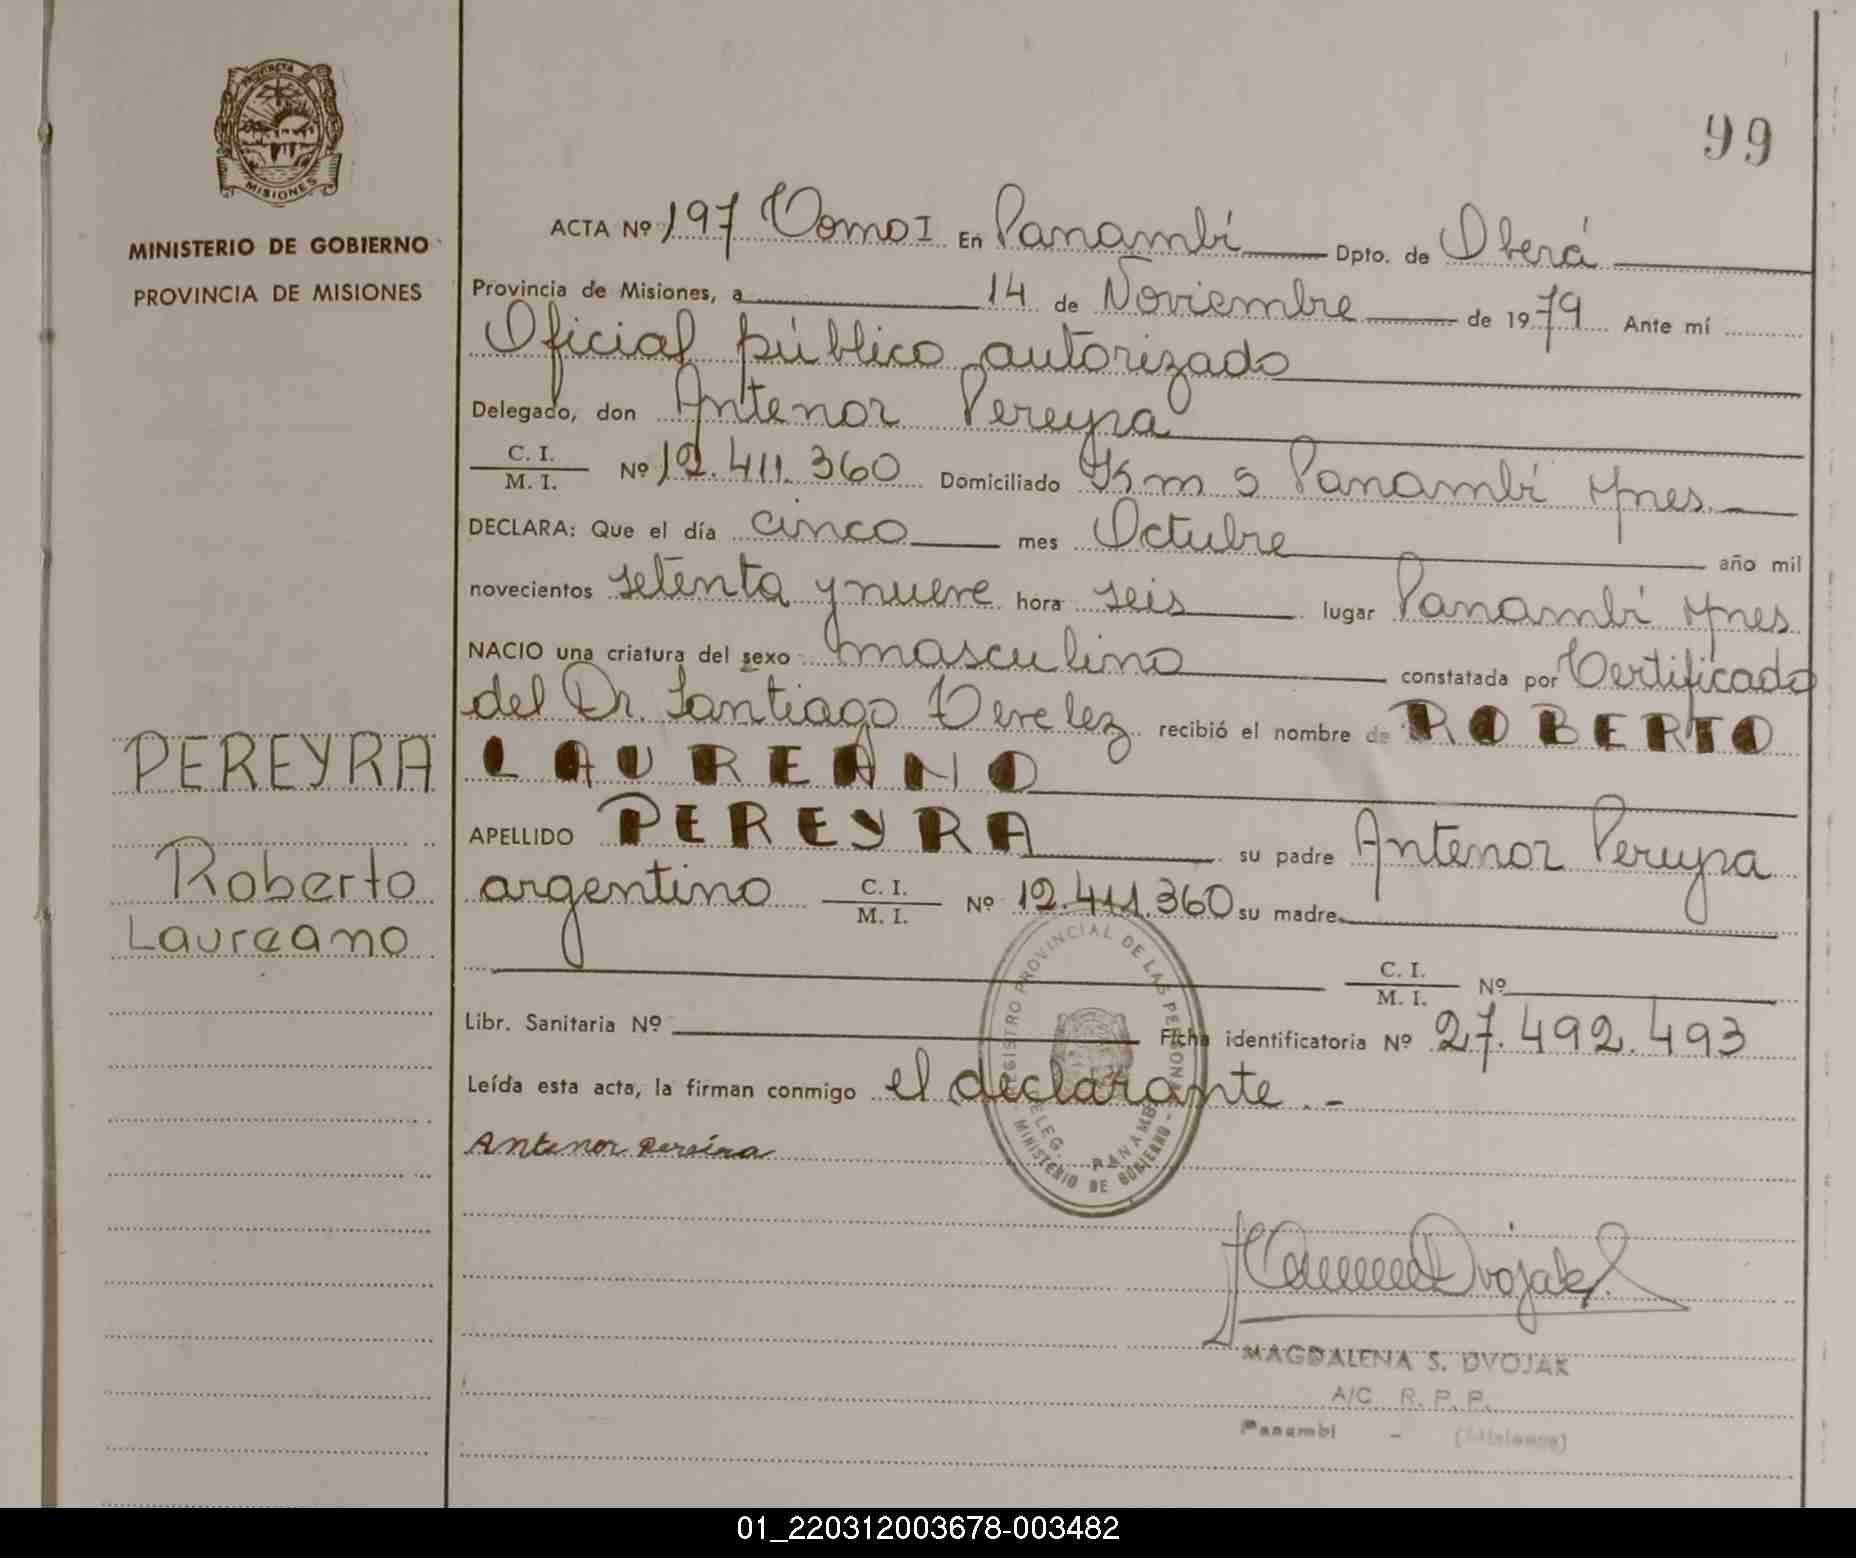 99
MISIONES
MINISTERIO DE GOBIERNO
PROVINCIA DE MISIONES
ACTA Nº 197 Tomo I En Panambí Dpto. de Oberá
Provincia de Misiones, a 14 de Noviembre de 1979 Ante mí
Oficial público autorizado
Delegado, don Antenor Pereyra
C. I.
M. I. Nº 12.411.360 Domiciliado Km 5 Panambí Mnes.
DECLARA: Que el día cinco mes Octubre año mil
novecientos setenta y nueve hora seis lugar Panambí Mnes
NACIO una criatura del sexo masculino constatada por Certificado
del Dr. Santiago recibió el nombre de ROBERTO
LAUREANO
APELLIDO PEREYRA su padre Antenor Pereyra
argentino C. I.
M. I. Nº 12.411.360 su madre
C. I.
M. I. Nº
Libr. Sanitaria Nº Ficha identificatoria Nº 27.492.493
Leída esta acta, la firman conmigo el declarante.-
Antenor Pereira
PEREYRA
Roberto
Laureano
REGISTRO PROVINCIAL DE LAS PERSONAS
DELEG. PANAMBI
MINISTERIO DE GOBIERNO
Dvojak
MAGDALENA S. DVOJAK
A/C R. P. P.
Panambi - (Misiones)
01_220312003678-003482